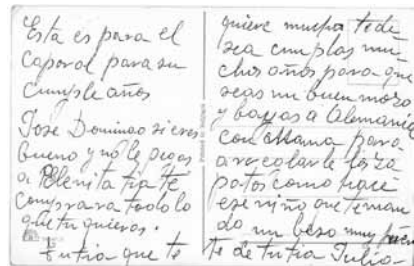 Esta es para el
Caporal para su
Cumple años
Jose Domingo si eres
bueno y no le pegas
a Elenita tia te
comprara todo lo
que tu quieras.
tu tia que te
quiere mucho te de
sea cumplas mu
chos años para que
seas un buen mozo
y bayas a Alemania
con Mama para
arreglarle los za
patos como hace
ese niño que te man
do un beso muy fuer
te de tu tia Julia